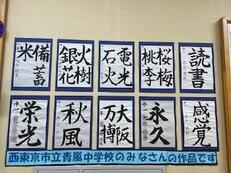 読書
桜梅
桃李
電光
石火
火樹
銀花
備蓄
米
感覚
永久
大阪
万博
秋風
栄光
西東京市立青嵐中学校のみなさんの作品です